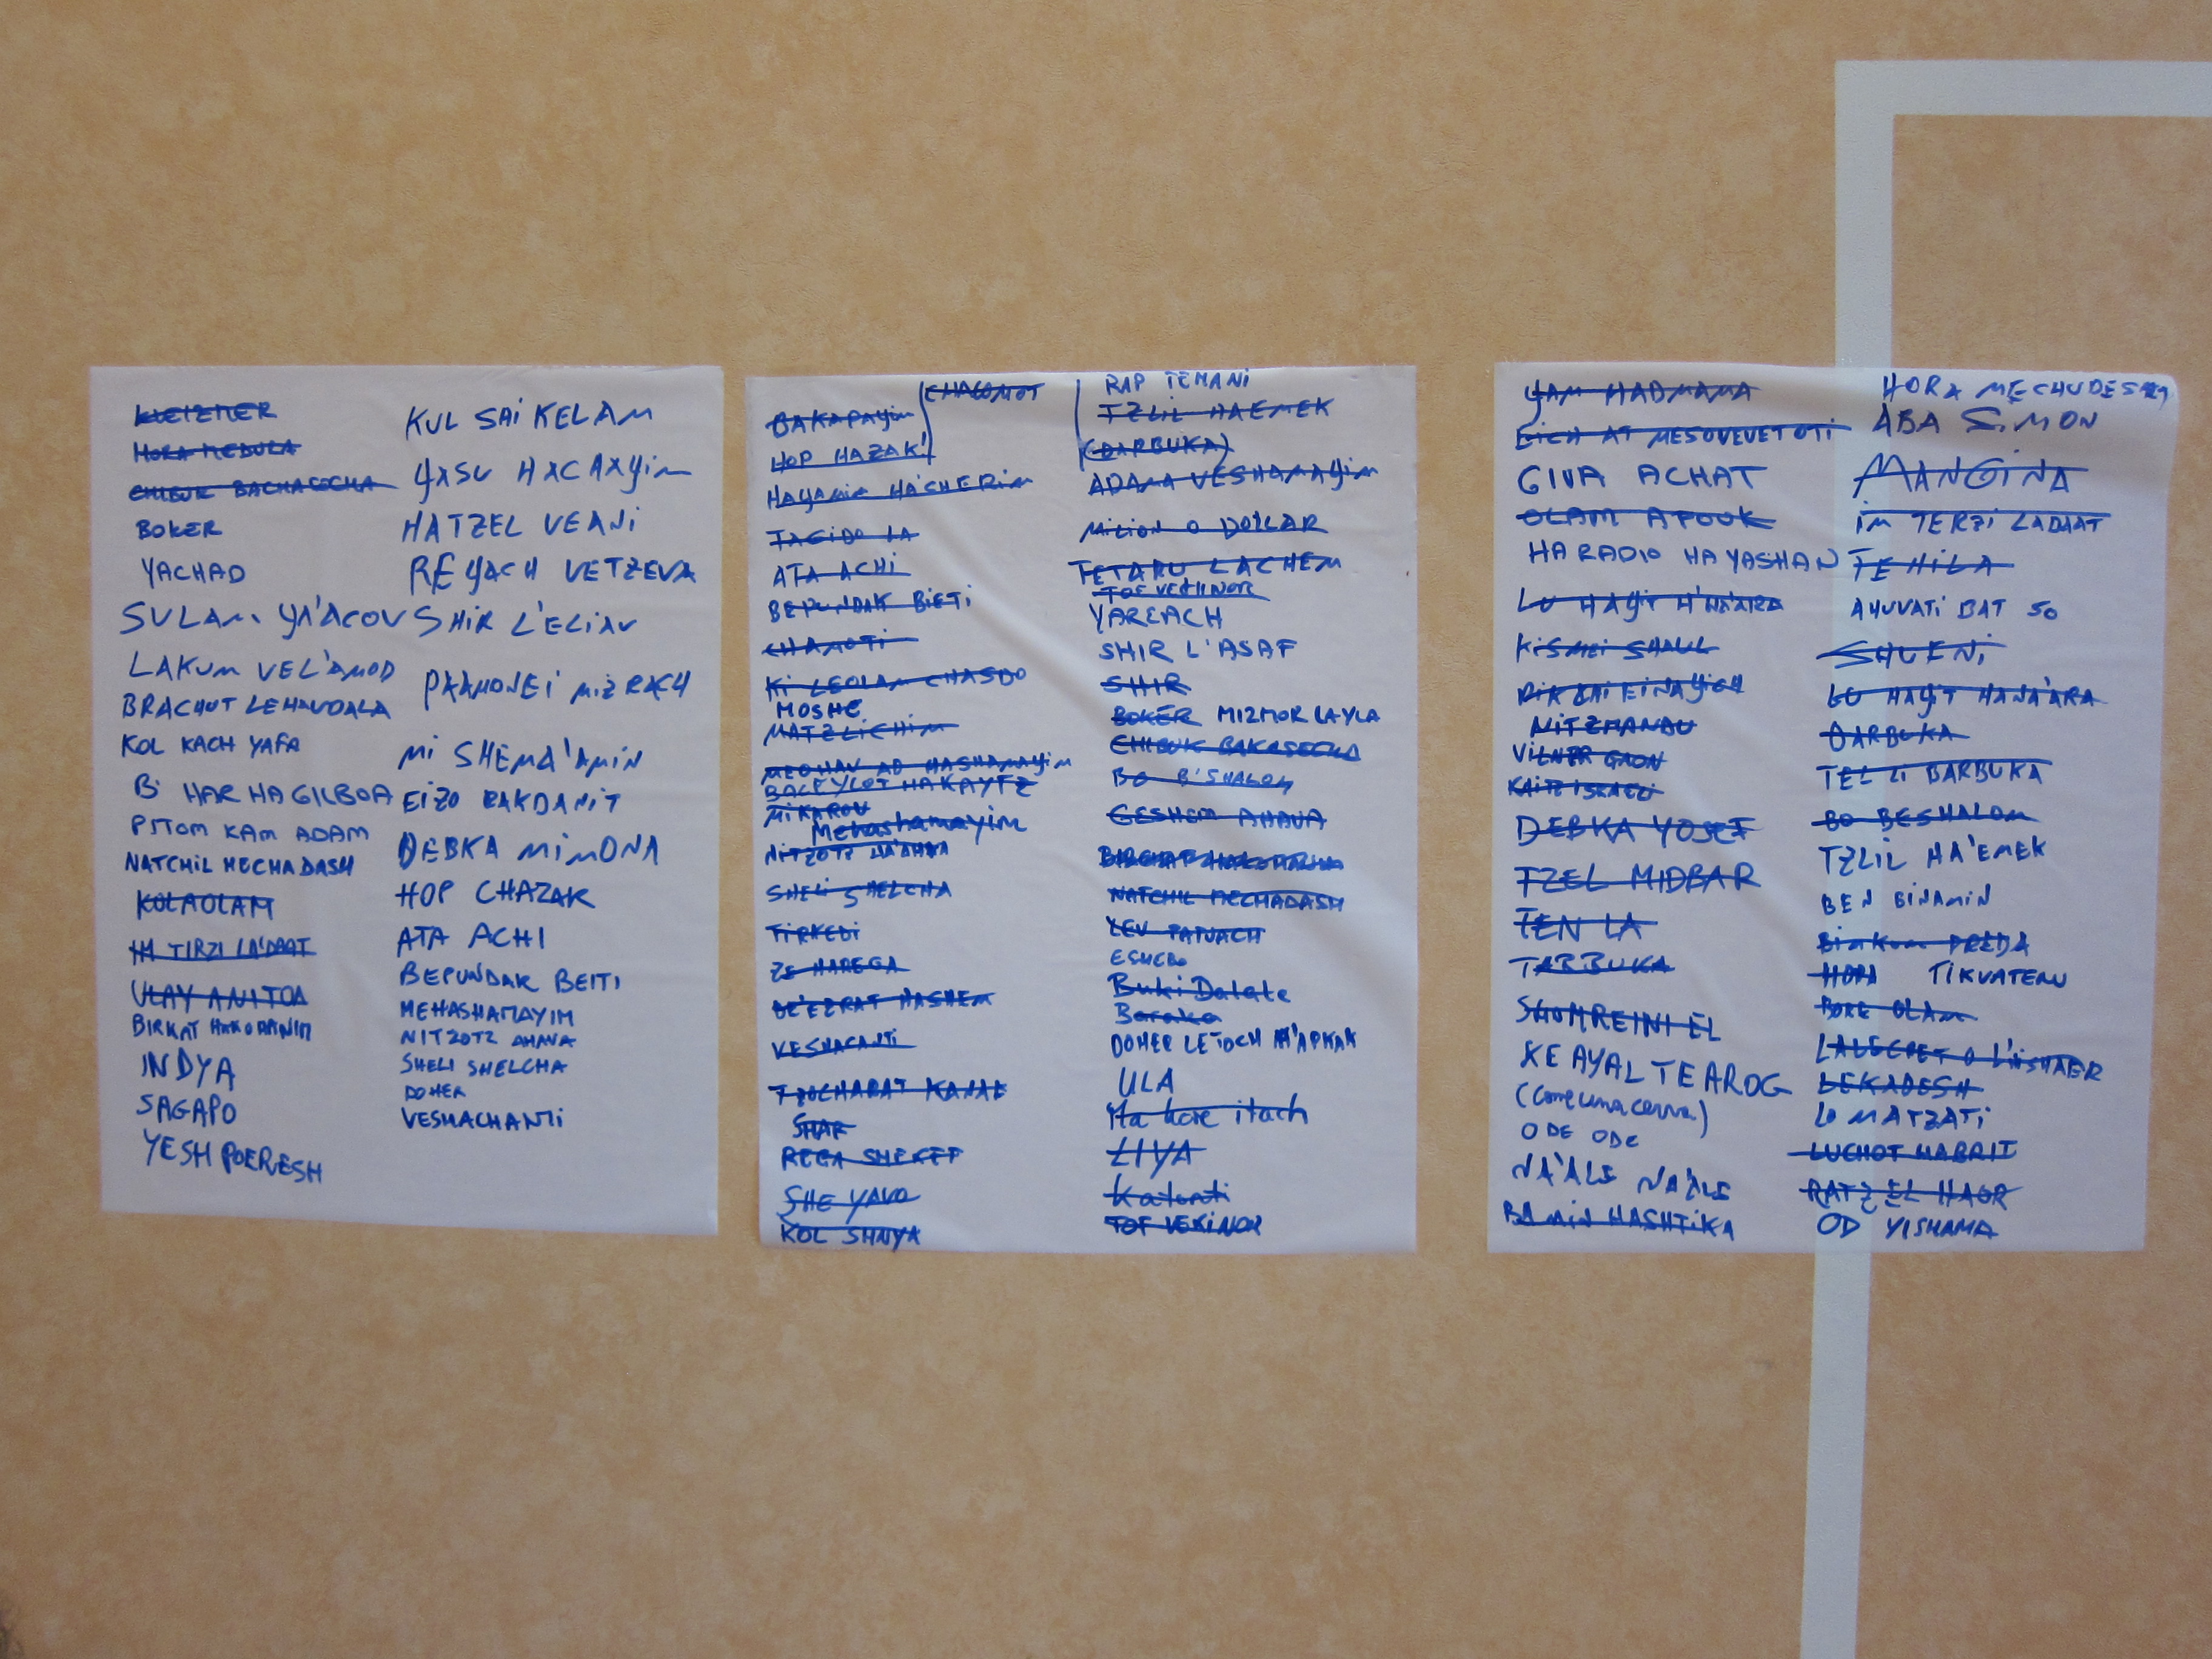 KLEIZMER
HORA MEDURA
CHIBUK
BOKER
YACHAD
SULAM YA'ACOV
LAKUM VEL'AMOD
BRACHOT LEHAVDALA
KOL KACH YAFA
B' HAR HAGILBOA
PITOM KAM ADAM
NATCHIL MECHADASH
KOLAOLAM
IM TIRZI LA'DAAT
ULAY ANI TOA
BIRKAT HAKOHANIM
INDYA
SAGAPO
YESH POERESH
KUL SAI KELAM
YASU HACAAYIM
HATZEL VEANI
REYACH VETZEVA
SHIR L'ELIAV
PAAMONEI MIZRACH
MI SHEMA'AMIN
EIZO RAKDANIT
DEBKA MIMONA
HOP CHAZAK
ATA ACHI
BEPUNDAK BEITI
MEHASHAMAYIM
NITZOTZ AHAVA
SHELI SHELCHA
DOHER
VESHACHANTI
CHALOMOT
BAKAPAYIM
HOP HAZAK!
HAYAMIM HA'CHERIM
TAGIDO LA
ATA ACHI
BEPUNDAK BIETI
CHAMOTI
KI LEOLAM CHASDO
MOSHE
MATZLICHIM
MEOHAV AD HASHAMAYIM
HAKAYTZ
MIKAROV
Mehashamayim
NITZOTZ HA'AHAVA
SHELI SHELCHA
TIRKEDI
ZE HAREGA
BE'EZRAT HASHEM
VESHACANTI
KANAF
SHAR
REGA SHEKET
SHE YAVO
KOL SHNYA
RAP TEMANI
TZLIL HAEMEK
(DARBUKA)
ADAMA VESHAMAYIM
MILION O DOLLAR
TETARU LACHEM
TOF VECHINOR
YAREACH
SHIR L'ASAF
SHIR
BOKER MIZMOR LAYLA
CHIBUK
BO B'SHALOM
GESHEM AHAVA
BIRCHAT
NATCHIL MECHADASH
LEV PATUACH
Buki Dalale
Baraka
DOHER LETOCH HA'APKAK
ULA
Ma kore itach
LIYA
Katonti
TOF VEKINOR
YAM HADMAMA
EICH AT MESOVEVET OTI
GIVA ACHAT
OLAM AFOUK
HA RADIO HA YASHAN
LU HAYIT H'NA'ARA
KISMEI SHAUL
NITZMANDU
VILNER GAON
KAITZ ISRAELI
DEBKA YOSEF
TZEL MIDBAR
TEN LA
TARBUKA
SHOMREINI EL
KE AYAL TEAROG
(come una cerva)
ODE ODE
NA'ALE NA'ALE
BAMIN HASHTIKA
HORA MECHUDESHET
ABA SIMON
MANGINA
IM TERZI LADAAT
TEHILA
AHUVATI BAT 50
SHUENI
LU HAYIT HANA'ARA
DARBUKA
TEL LI BARBUKA
BO BESHALOM
TZLIL HA'EMEK
BEN BINAMIN
BIMKOM PREDA
HORA TIKVATENU
BORE OLAM
LALECHET O L'ISHAER
LEKADESH
LO MATZATI
LUCHOT HABRIT
RATZ EL HAOR
OD YISHAMA